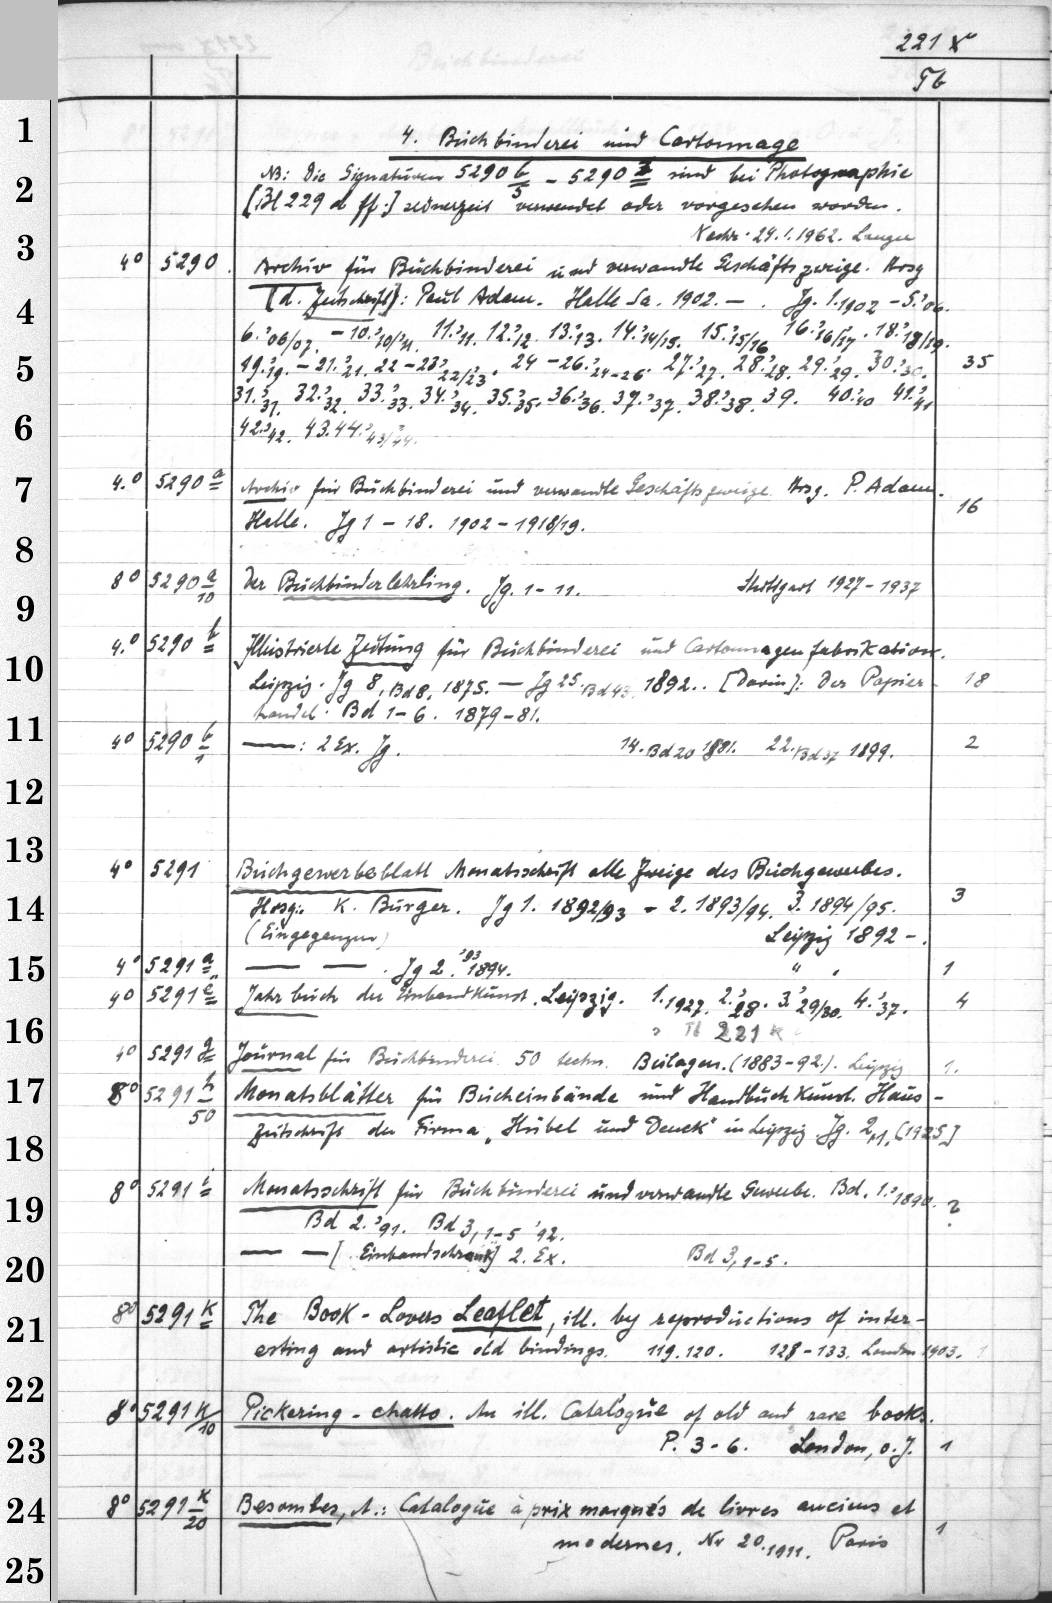 221 x
Tb
1
4. Buchbinderei und Cartonnage
2
NB: Die Signaturen 5290 b/5 - 5290 z sind bei Photographie
[Bl 229 d ff.] seinerzeit verwendet oder vorgesehen worden.
Nachr. 24.1.1962. Langer
3
4° 5290. Archiv für Buchbinderei und verwandte Geschäftszweige. Hrsg
4
[d. Zeitschrift]: Paul Adam. Halle Sa. 1902. — . Jg. 1.1902 - 5.'06.
6.'06/07. - 10.'10/11. 11.'11. 12.'12. 13.'13. 14.'14/15. 15.'15/16 16.'16/17. 18.'18/19.
5
19.'19. - 21.'21. 22-23'22/23. 24-26.'24-26. 27.'27. 28.'28. 29.'29. 30.'30. 35
31.'31. 32.'32. 33.'33. 34.'34. 35.'35. 36.'36. 37.'37. 38.'38. 39. 40.'40 41.'41
6
42.'42. 43.44.'43/44.
7
4.° 5290 a Archiv für Buchbinderei und verwandte Geschäftszweige. Hrsg. P. Adam.
Halle. Jg 1 - 18. 1902 - 1918/19. 16
8
8° 5290 a/10 Der Buchbinderlehrling. Jg. 1 - 11. Stuttgart 1927 - 1937
9
4.° 5290 b Illustrierte Zeitung für Buchbinderei und Cartonnagenfabrikation.
10
Leipzig. Jg 8, Bd 8, 1875. — Jg 25. Bd 43. 1892.. [Darin]: Der Papier- 18
handel. Bd 1 - 6. 1879 - 81.
11
4° 5290 b/1 —: 2 Ex. Jg. 14. Bd 20 1881. 22. Bd 37 1899. 2
12
13
4° 5291 Buchgewerbeblatt Monatsschrift alle Zweige des Buchgewerbes.
14
Hrsg: K. Burger. Jg 1. 1892/93 - 2. 1893/94. 3. 1894/95. 3
(Eingegangen) Leipzig 1892 - .
15
4° 5291 a — — . Jg 2. '93 1894. " . 1
4° 5291 c Jahrbuch der Einbandkunst. Leipzig. 1.1927. 2.'28. 3.'29/30. 4.'37. 4
16
Tb 221 x
4° 5291 g Journal für Buchbinderei. 50 techn. Beilagen. (1883-92.). Leipzig 1.
17
8° 5291 h/50 Monatsblätter für Bucheinbände und Handbuchkunst. Haus-
Zeitschrift der Firma „Hübel und Denck" in Leipzig. Jg. 2,1. [1925]
18
19
8° 5291 i Monatsschrift für Buchbinderei und verwandte Gewerbe. Bd. 1.'1890. ?
Bd 2.'91. Bd 3, 1-5 '92.
20
— — [Einbandschrank] 2. Ex. Bd 3, 1-5.
21
8° 5291 k The Book-Lovers Leaflet, ill. by reproductions of inter-
esting and artistic old bindings. 119.120. 128-133. London 1903. 1
22
8° 5291 k/10 Pickering-chatto. An ill. Catalogue of old and rare books.
23
P. 3-6. London, o.J. 1
24
8° 5291 k/20 Besombes, A.: Catalogue à prix marqués de livres anciens et
modernes. Nr 20.1911. Paris 1
25